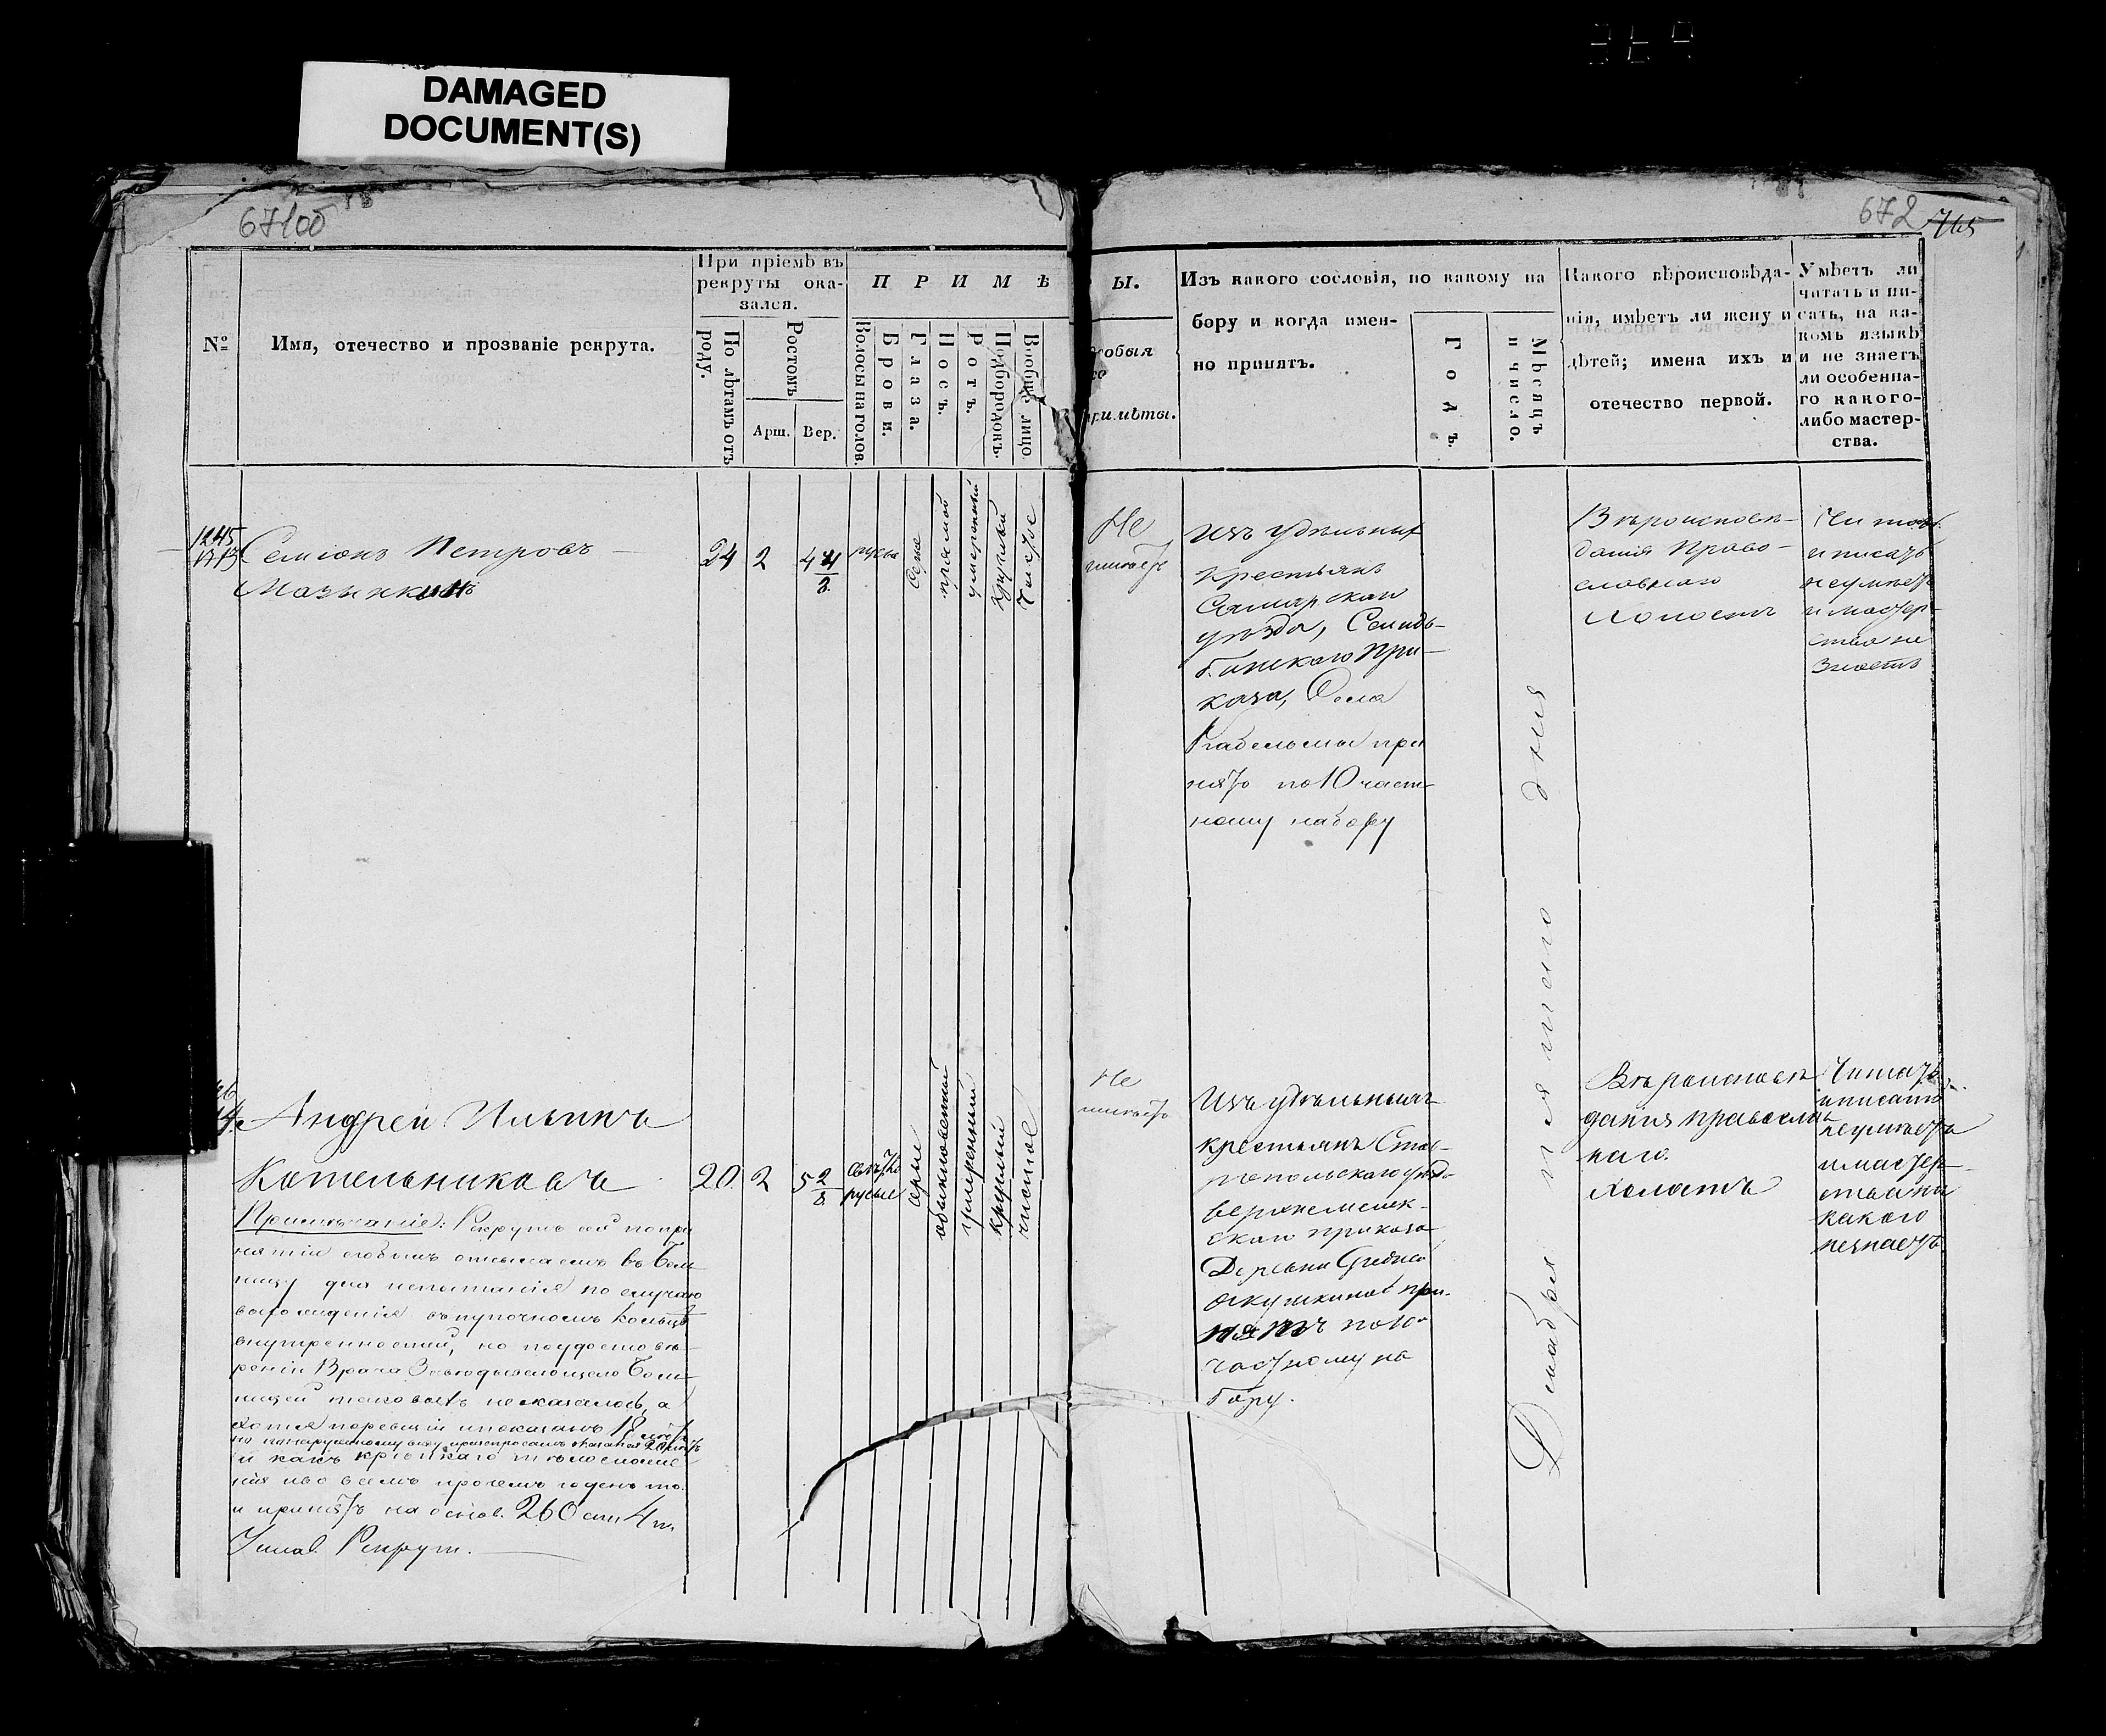 DAMAGED
DOCUMENT(S)
672
765
№
Имя, отечество и прозваніе рекрута.
При пріемѣ въ
рекруты ока-
зался.
По лѣтамъ отъ
роду.
Ростомъ
Арш.
Вер.
П Р И М Ѣ
Волосы на голов.
Брови.
Глаза.
Носъ.
Ротъ.
Подбородокъ.
Вообще лицо
Ы.
собыя
римѣты.
Изъ какого сословія, по какому на
бору и когда имен-
но принятъ.
Годъ.
Мѣсяцъ
и число.
Какого вѣроисповѣда-
нія, имѣетъ ли жену и
дѣтей; имена ихъ и
отечество первой.
Умѣетъ ли
читать и пи-
сать, на ка-
комъ языкѣ
и не знаетъ
ли особенна-
го какого-
либо мастер-
ства.
1245
Семіонъ Петровъ
24
2
4 4/8
русы
серые
прямой
умеренный
круглый
чистое
Не
имѣетъ
Изъ удѣльныхъ
крестьянъ
Самарскаго
уѣзда,
приказа, Села
принятъ по 10 част-
ному набору
Вѣроисповѣ-
данія Право-
славнаго
Холостъ
Читать
и писать
неумѣетъ
и мастер-
ства не
знаетъ
Андрей Ильинъ
Котельниковъ
20
2
5 2/8
свѣтло
русые
серые
обыкновенный
умеренный
круглый
чистое
Не
имѣетъ
Изъ удѣльныхъ
крестьянъ Став-
ропольскаго уѣзда
приказа
Деревни
при-
нятъ по 10
частному на
бору.
Вѣроисповѣ
данія православ
наго.
Холостъ
Читать
и писать
неумѣетъ
и мастер-
ства ни
какого
незнаетъ
Примѣчаніе: Рекрутъ сей по при
нятіи отсылаемъ въ Боль
ницу для испытанія по случаю
въ пупочномъ кольцѣ
внутренностей, но по удостовѣ-
ренію Врача Завѣдывающаго Боль-
ницей таковыхъ не оказалось, а
хотя по ревизіи и показанъ 18 лѣтъ
но по наружному виду 20 лѣтъ
и какъ крѣпкаго тѣлосложе
нія и во всемъ прочемъ годенъ то
и принятъ на основ. 260 ст. 4 т.
Устав. Рекрут.
Декабря пятаго дня